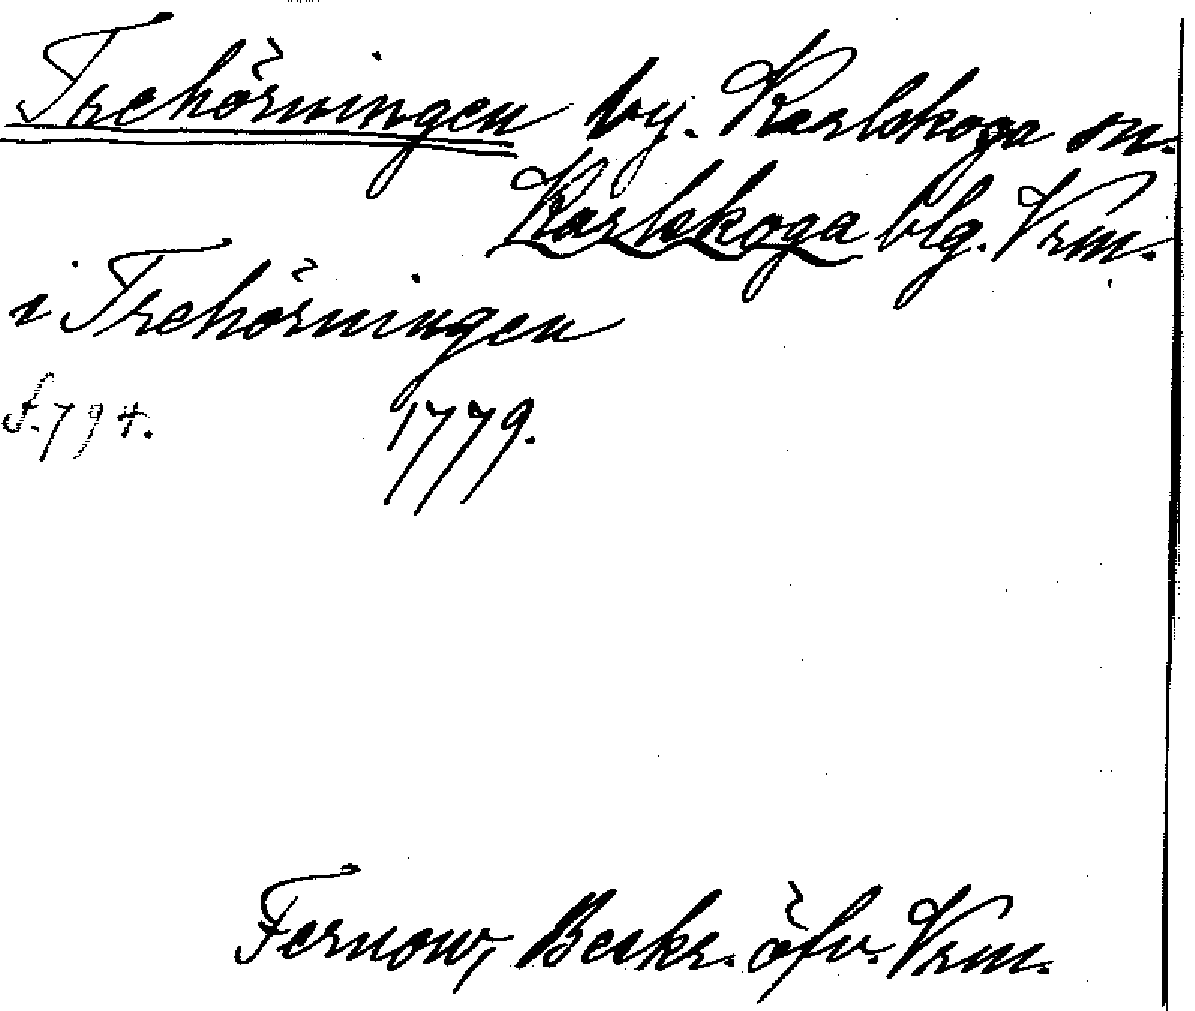 Trehörningen by. Karlskoga sn.
Karlskoga blg. Vrm.
i Trehörningen
s. 794. 1779.
Fernow, Beskr. öfv. Vrm.